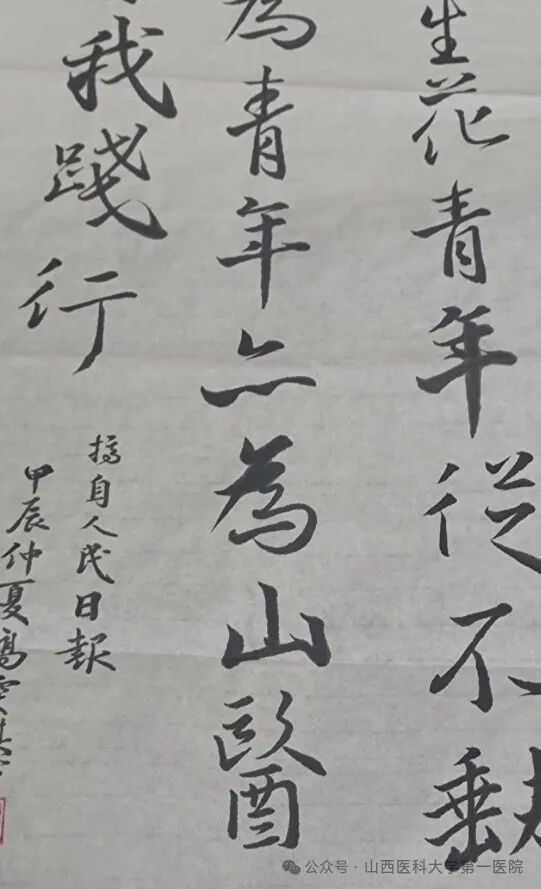 生花青年從不
為青年亦為山醫
我踐行
摘自人民日報
甲辰仲夏高
公众号 · 山西医科大学第一医院